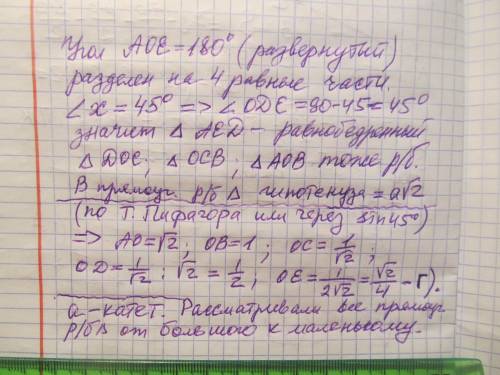 Угол AOE=180° (развернутый)
разделен на 4 равные части.
∠x = 45° => ∠ODE=90-45=45°
значит △ AED - равнобедренный
△ DOE; △ OCB; △ AOB тоже р/б.
В прямоуг. р/б △ гипотенуза = a√2
(по Т. Пифагора или через sin45°)
=> AO=√2; OB=1; OC=1/√2;
OD=1/√2 : √2 = 1/2; OE=1/2√2=√2/4 - Г).
a - катет. Рассматривали все прямоуг
р/б△ от большого к маленькому.